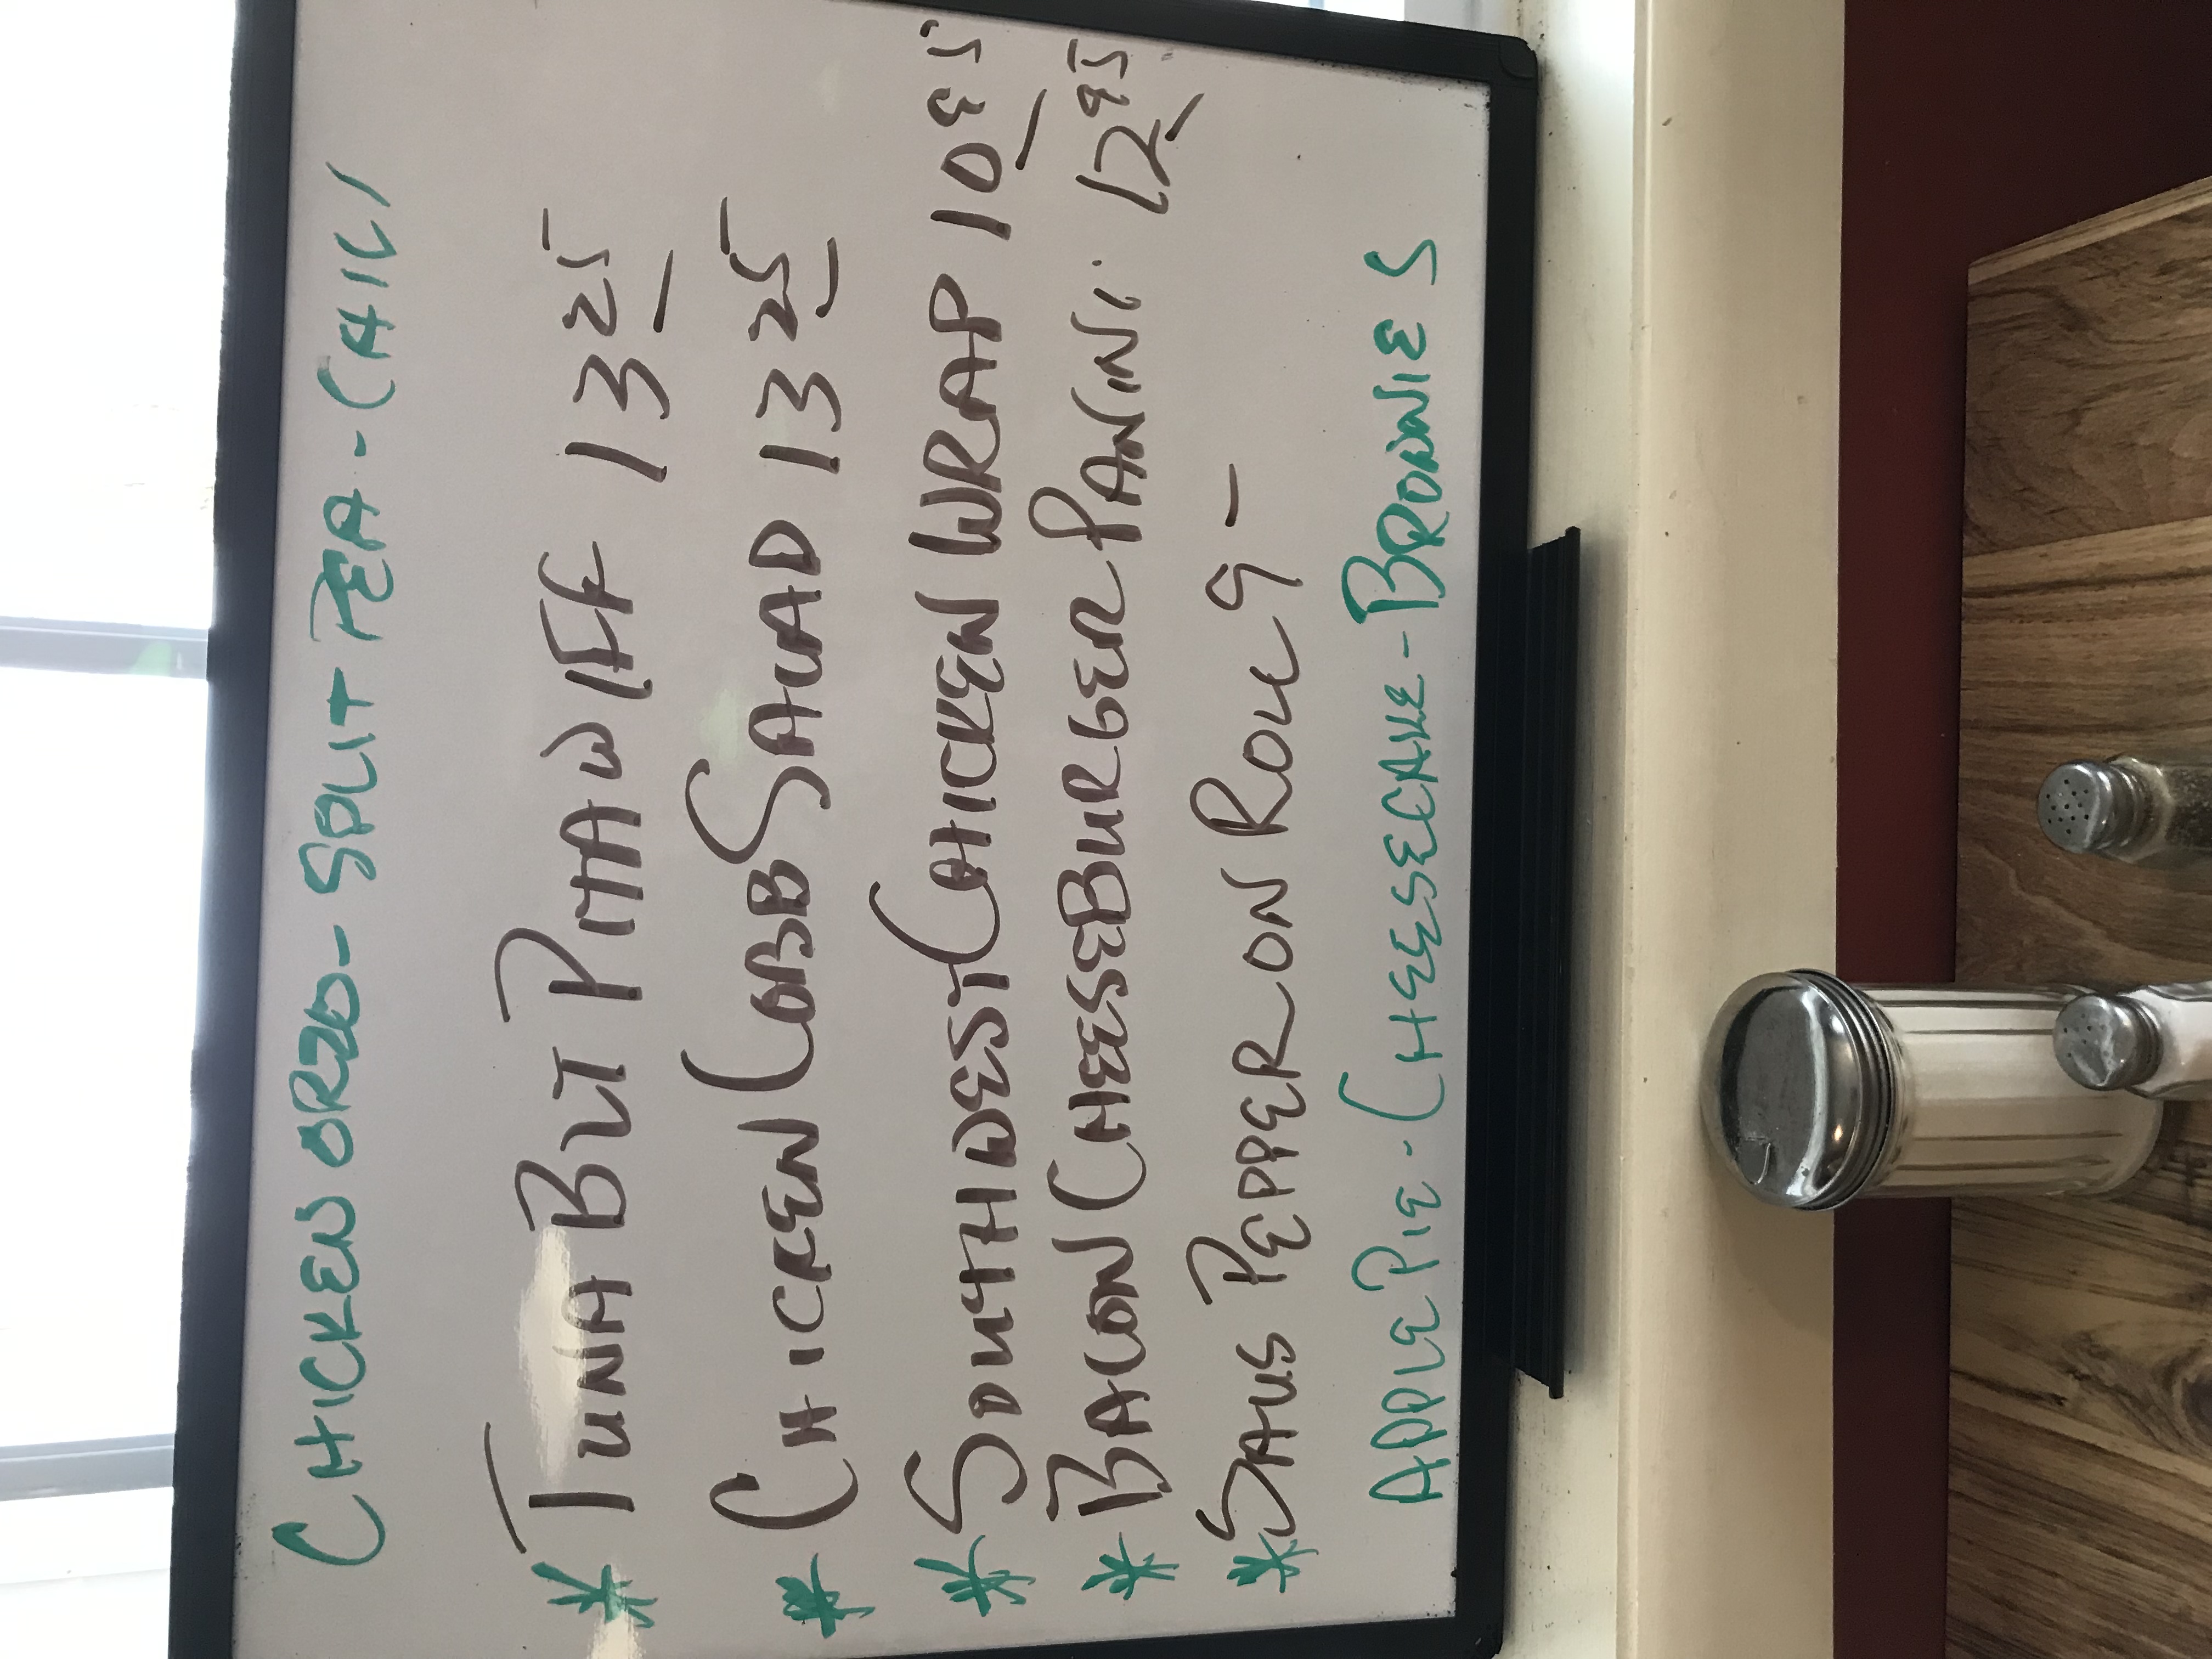 CHICKEN ORZO - SPLIT PEA - CHILI
* TUNA BLT PITA W/FF 13 25
* CHICKEN COBB SALAD 13 25
* SOUTHWEST CHICKEN WRAP 10 95
* BACON CHEESEBURGER PANINI. 12 95
* SAUS PEPPER ON ROLL 9 -
APPLE PIE - CHEESECAKE - BROWNIES